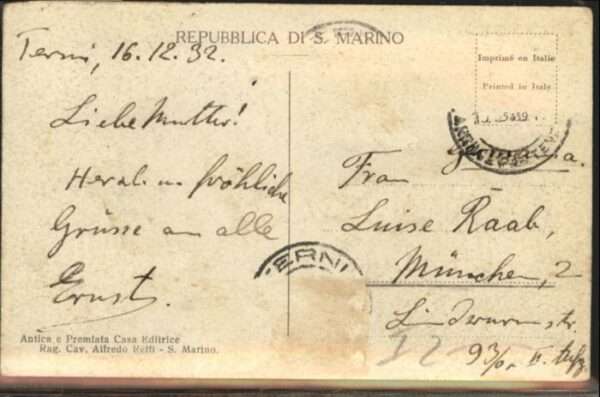 REPUBBLICA DI S. MARINO
Terni, 16.12.32.
Liebe Mutter!
Herzl. u. fröhliche
Grüsse an alle
Ernst.
Antica e Premiata Casa Editrice
Rag. Cav. Alfredo Reffi - S. Marino.
Imprimé en Italie
Printed in Italy
Germania.
Frau
Luise Raab,
München, 2
Lindwurmstr.
93/0, II.
TERNI
12